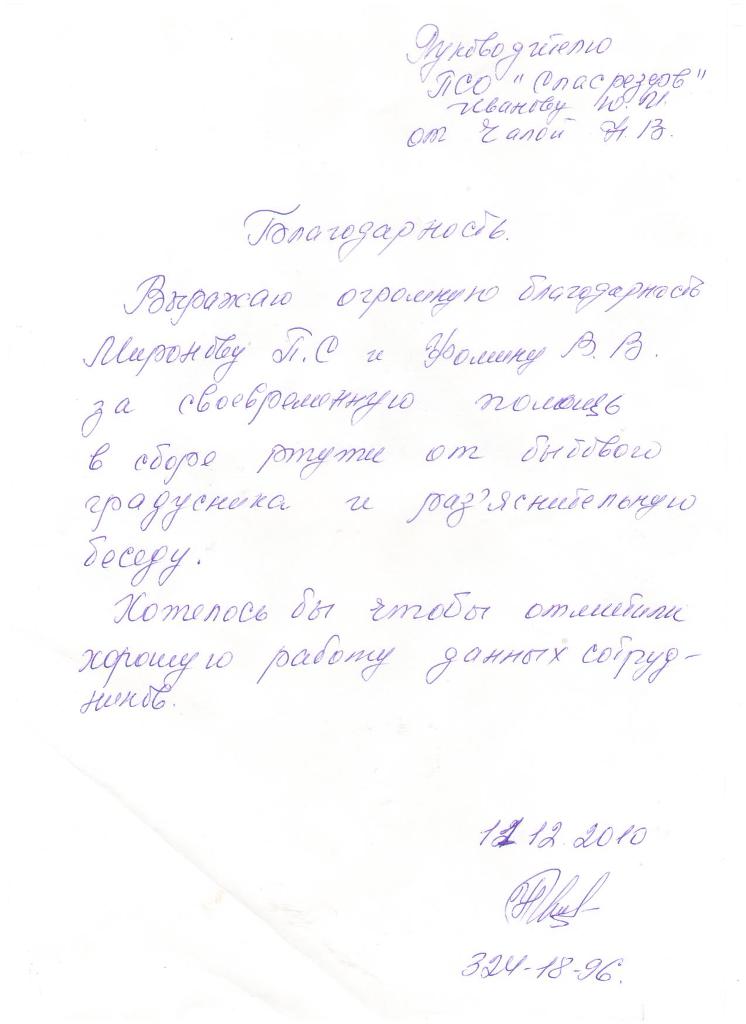 Руководителю
ПСО "Спасрезерв"
Иванову Ю.И.
от Чалой Н.В.
Благодарность.
Выражаю огромную благодарность
Миронову П.С и Фомину В.В.
за своевременную помощь
в сборе ртути от бытового
градусника и раз'яснительную
беседу.
Хотелось бы чтобы отметили
хорошую работу данных сотруд-
ников.
11 12 2010
324-18-96.